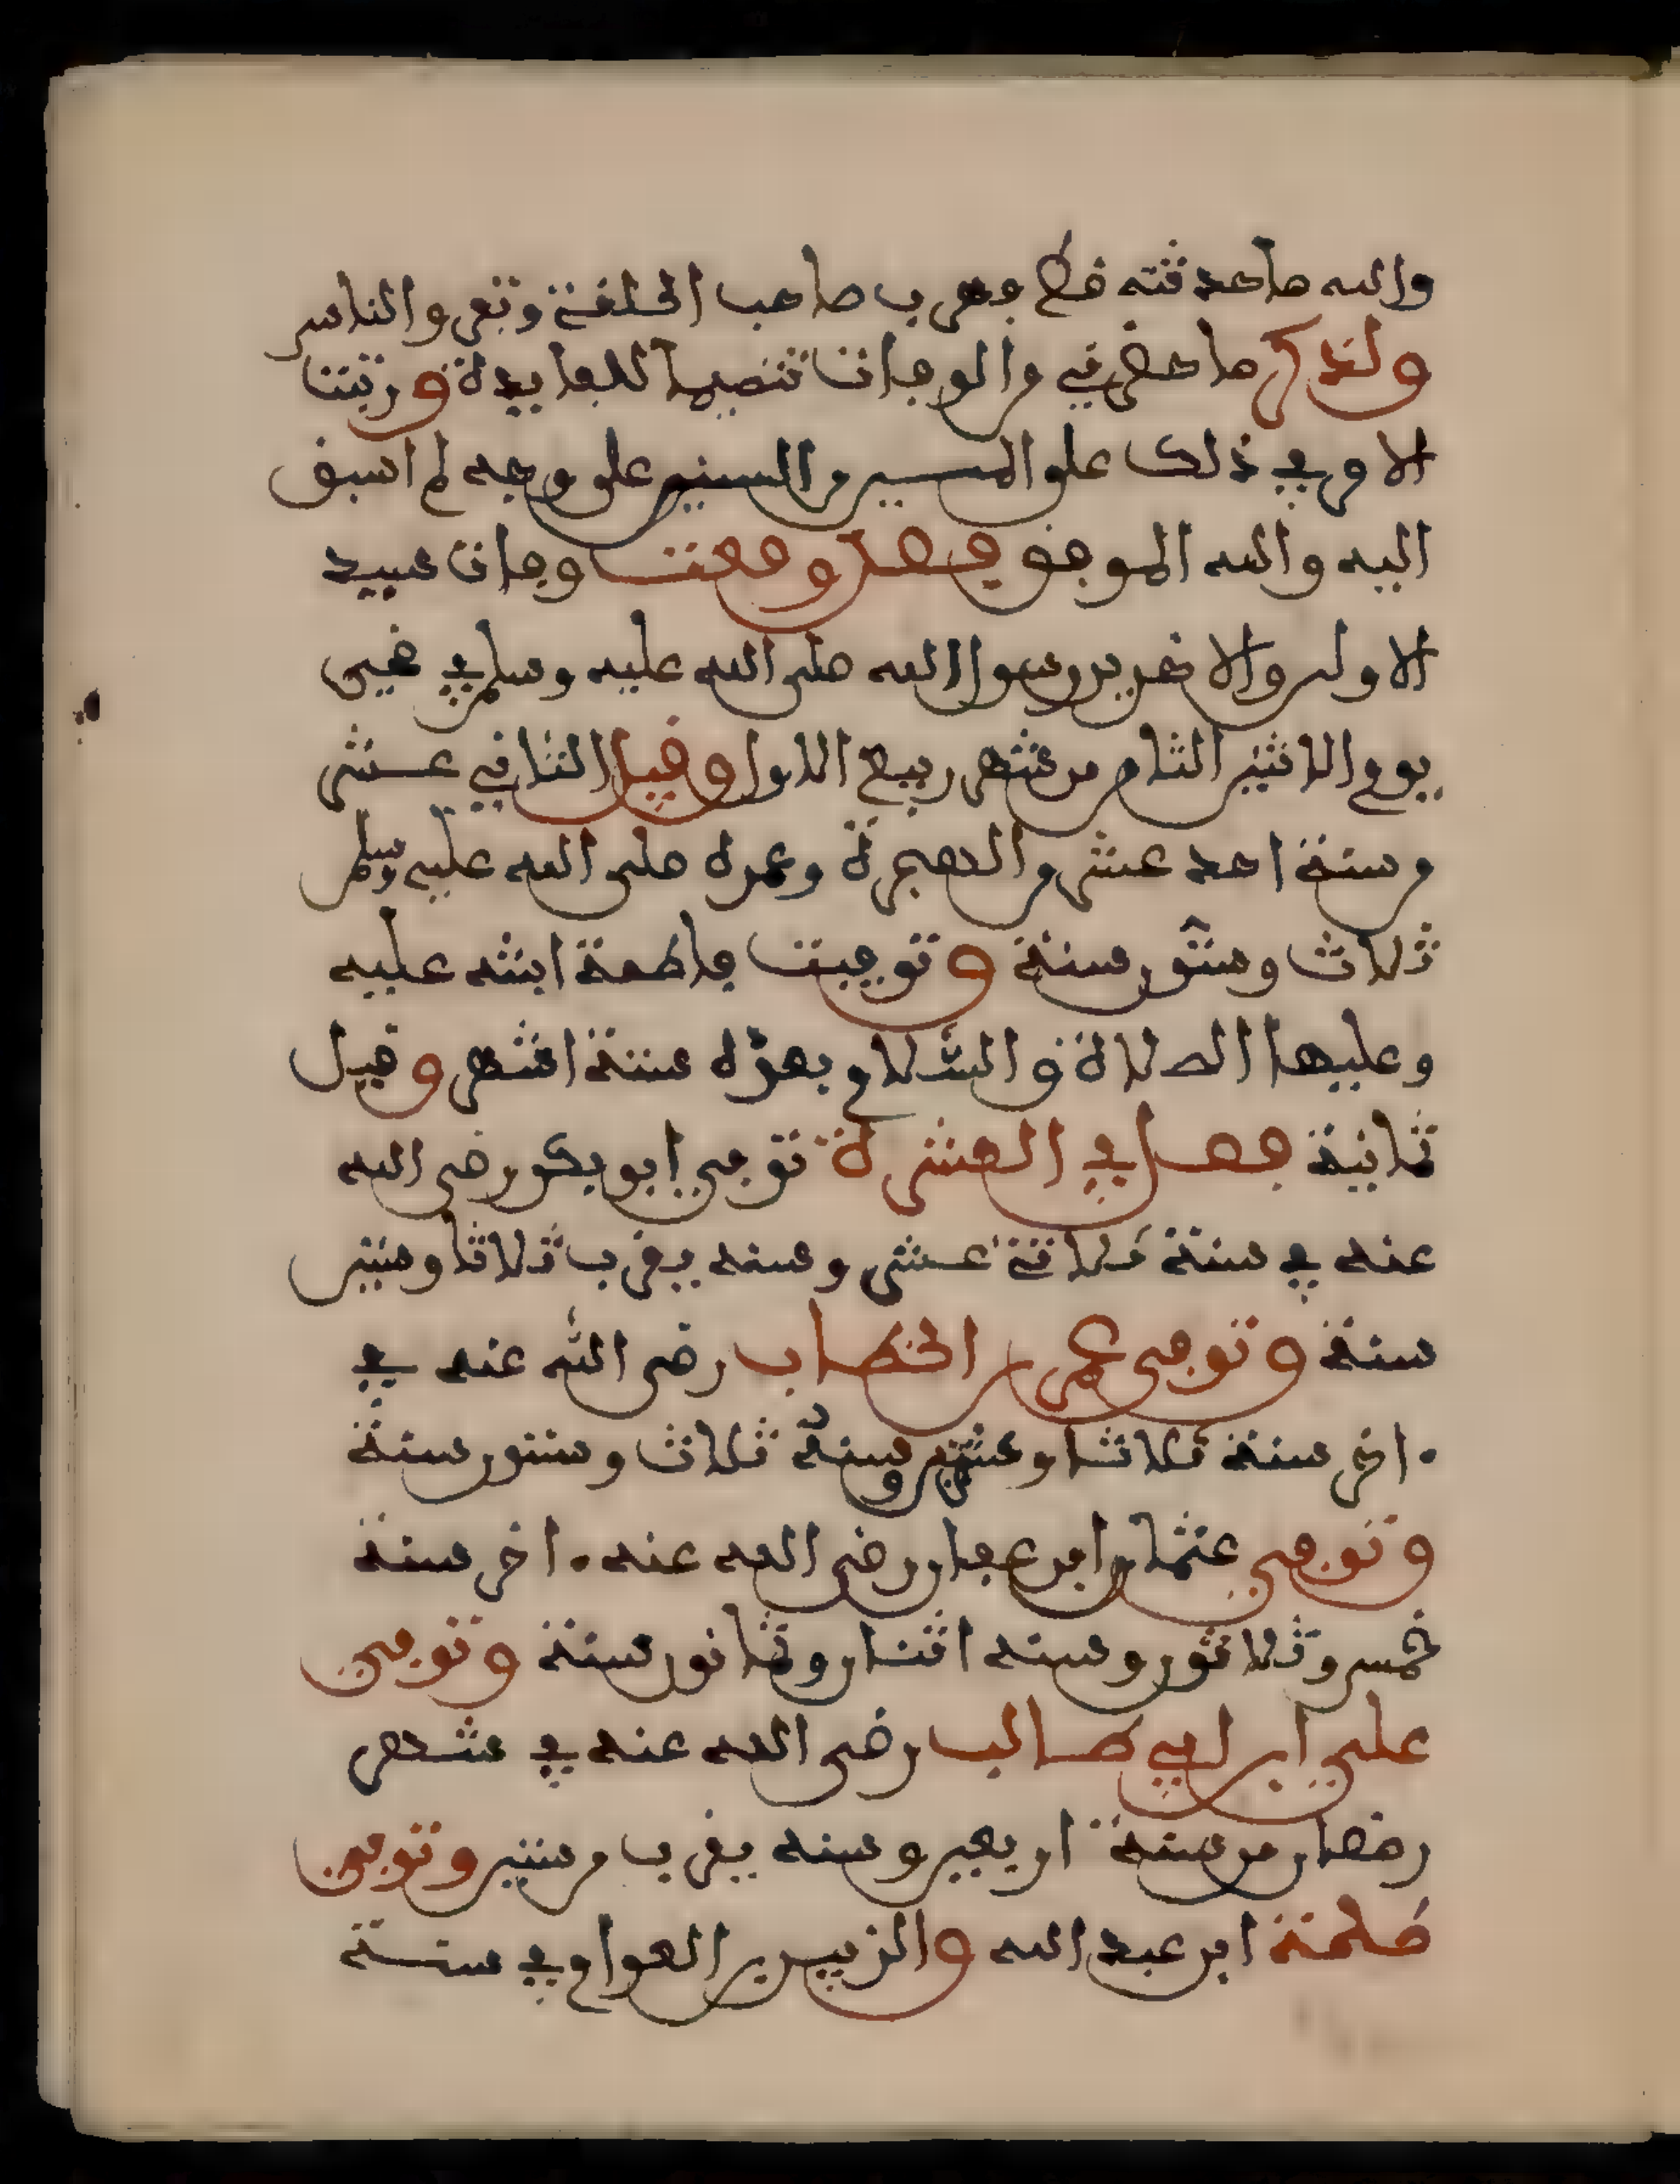 والله ما حدثته قط فهرب صاحب الحلقة وتفرو الناس
ولنذكر ما حضرني من الوفاات تتميما للفايدة ورتبت
الامر في ذلك على السنين على وجه لم اسبق
اليه والله الموفق فصل وقعت وفات سيد
الاولين والاخرين رسول الله صلى الله عليه وسلم في ضحى
يوم الاثنين الثاني من شهر ربيع الاول وقيل الثاني عشر
من سنة احد عشر من الهجرة وعمره صلى الله عليه وسلم
ثلاث وستون سنة وتوفيت فاطمة ابنته عليه
وعليها الصلاة والسلام بعده ستة اشهر وقيل
ثمانية فصل في العشرة توفي ابو بكر رضي الله
عنه في سنة ثلاثة عشر وسنه يقرب ثلاثا وستين
سنة وتوفي عمر بن الخطاب رضي الله عنه في
اخر سنة ثلاثا وعشرين وسنه ثلاث وستون سنة
وتوفي عثمان ابن عفان رضي الله عنه اخر سنة
خمس وثلاثون وسنه اثنان وثمانون سنة وتوفي
علي ابن ابي طالب رضي الله عنه في شهر
رمضان من سنة اربعين وسنه يقرب من ستين وتوفي
طلحة ابن عبد الله والزبير بن العوام في سنة